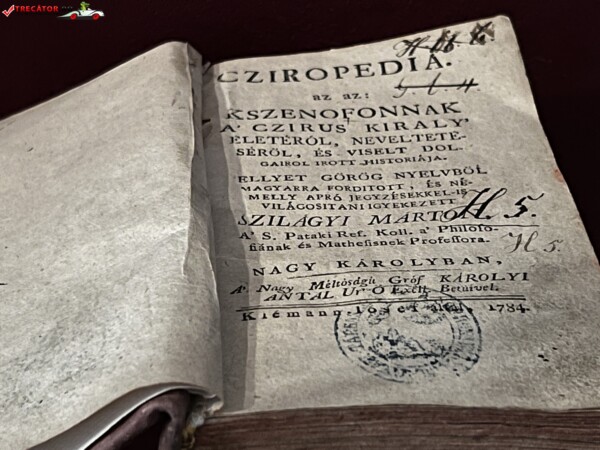 TRECĂTOR
CZIROPEDIA.
az az:
KSZENOFONNAK
A' CZIRUS KIRALY'
ELETÉRÖL, NEVELTETE-
SÉRÖL, ÉS VISELT DOL-
GAIROL IROTT HISTORIÁJA.
ELLYET GÖRÖG NYELVBÖL
MAGYARRA FORDITOTT, ÉS NÉ-
MELLY APRÓ JEGYZÉSEKKEL-IS
VILÁGOSITANI IGYEKEZETT
SZILÁGYI MÁRTO
H. 5.
A' S. Pataki Ref. Koll. a' Philoso-
fiának és Mathesisnek Professora.
H 5.
NAGY KÁROLYBAN,
A' Nagy Méltóságú Gróf KÁROLYI
ANTAL Ur Ö Exell. Betüivel.
Klemann Iosef által. 1784.